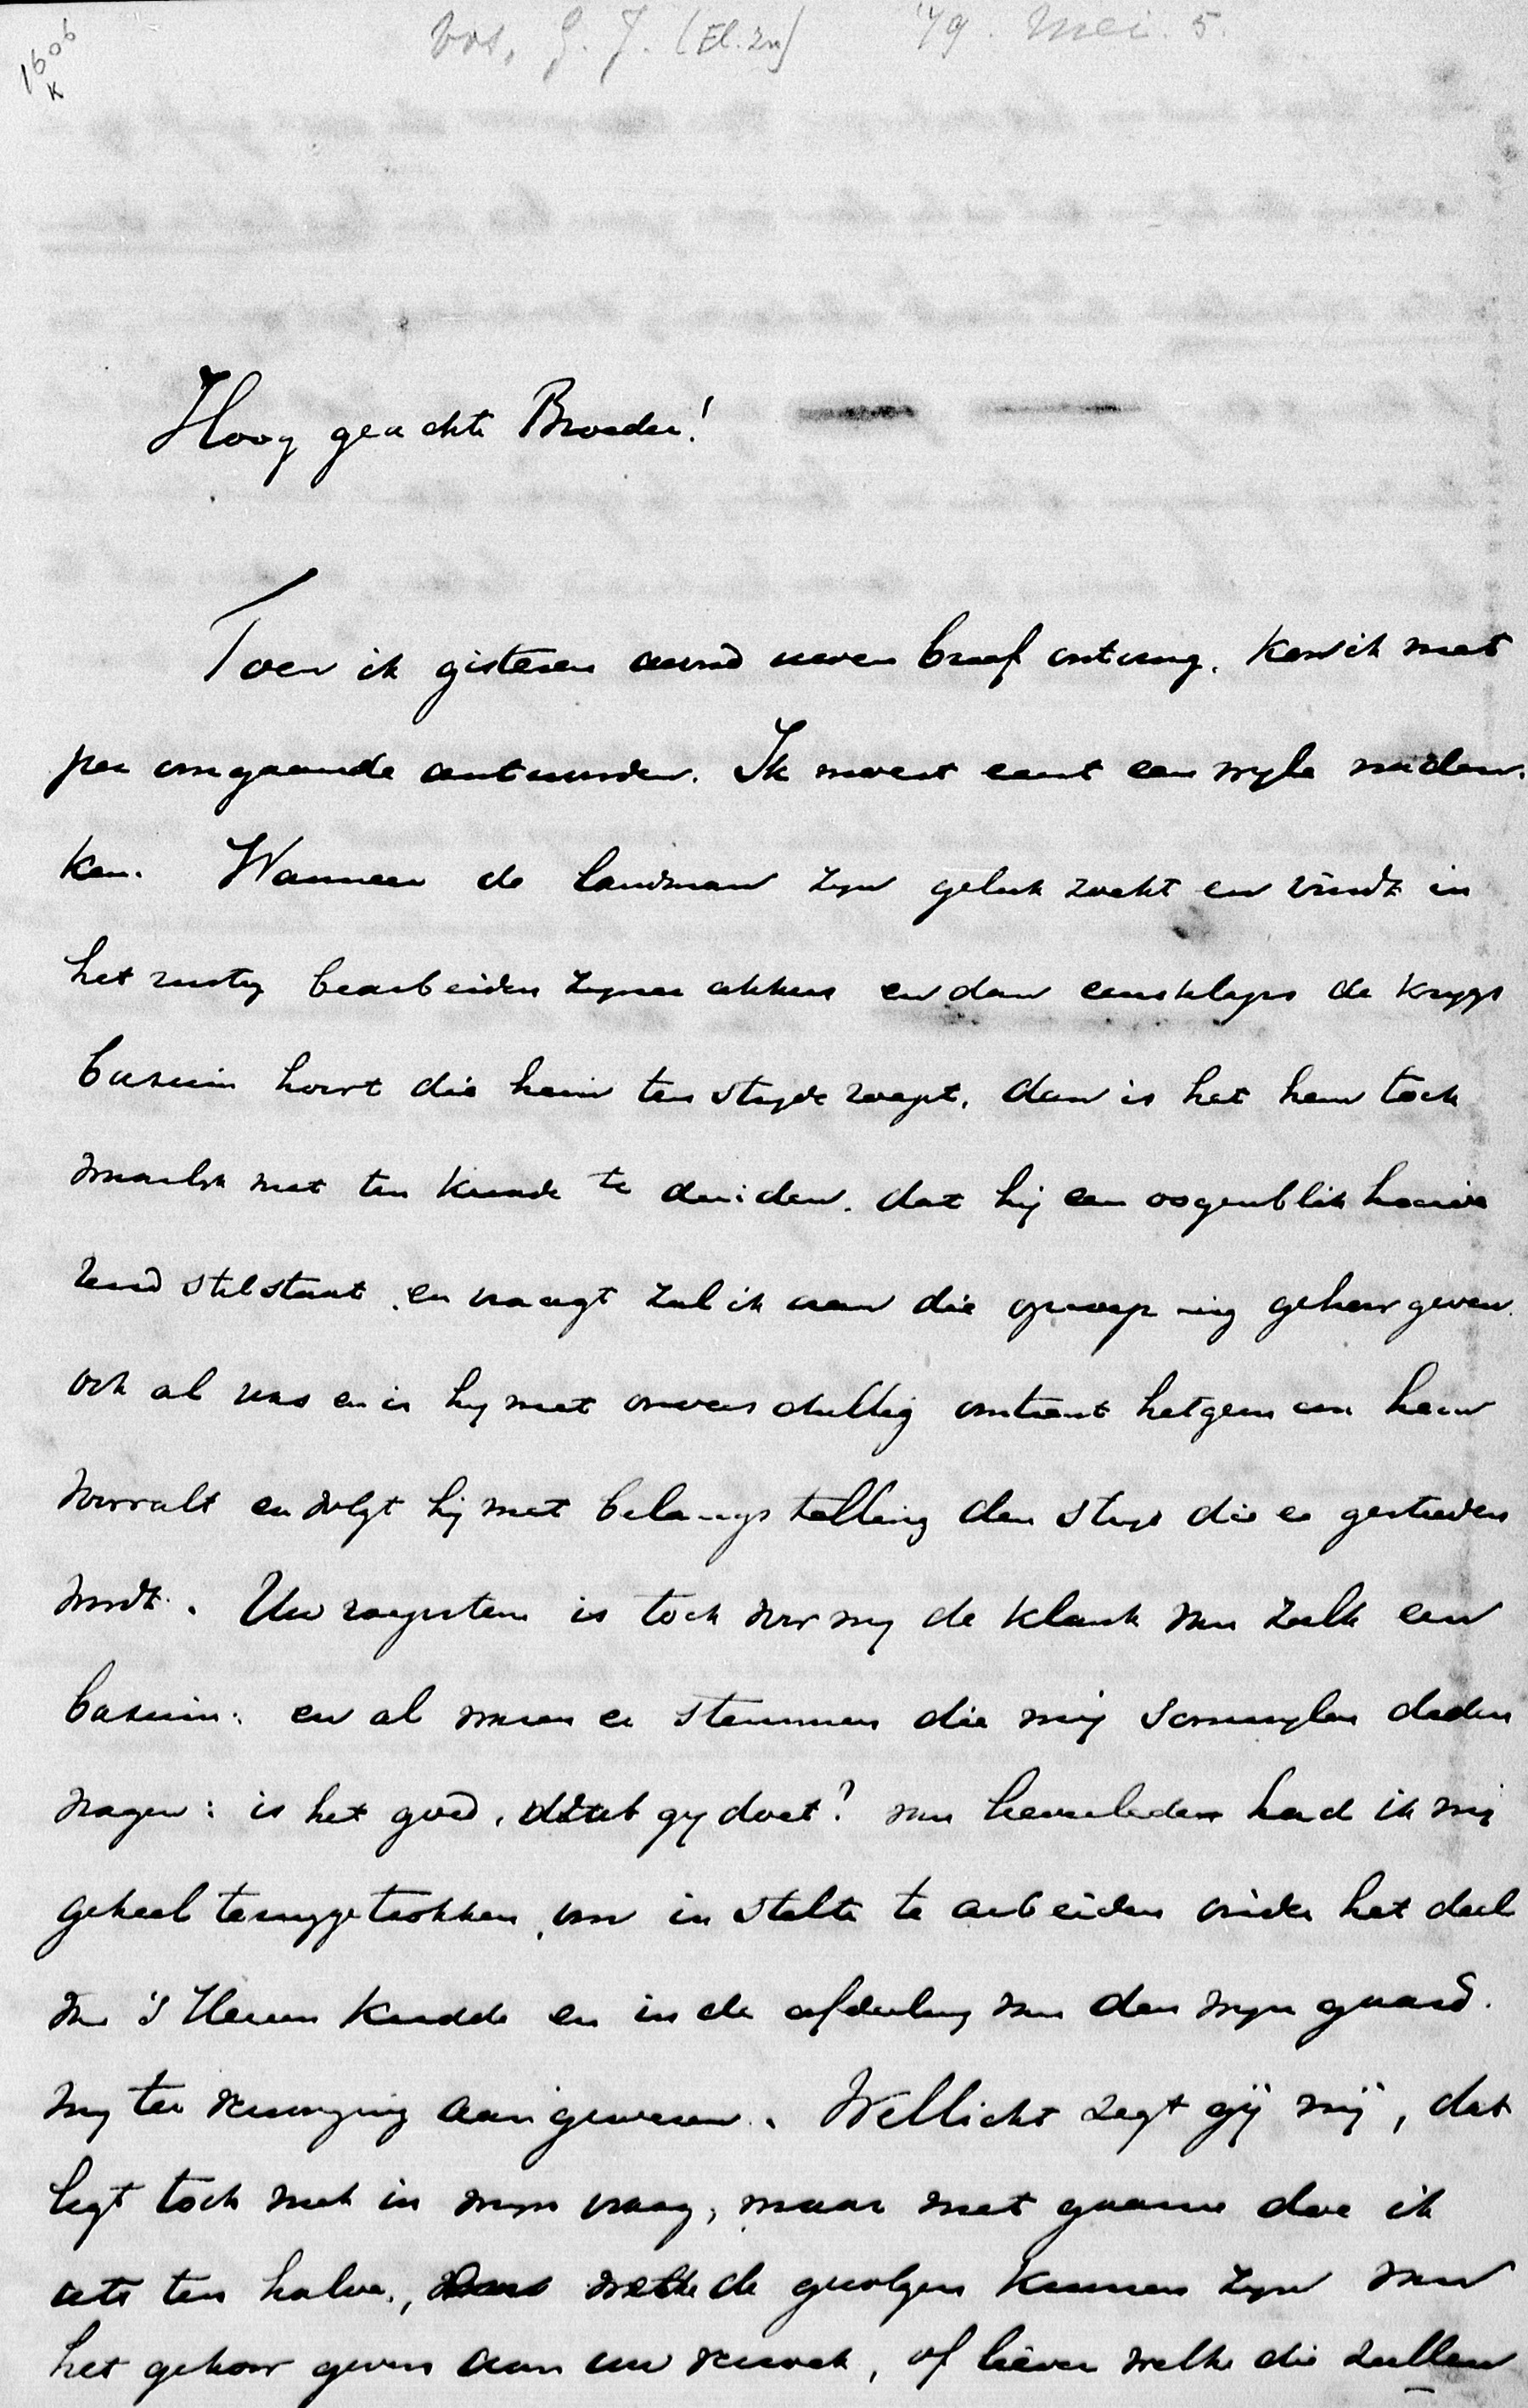 1606
K
Vos, G. J. (El. zn) '79. Mei. 5.
Hoog geachte Broeder!
Toen ik gisteren avond uwen brief ontving, kon ik niet
per omgaande antwoorden. Ik moest eerst een wyle naden-
ken. Wanneer de landman zyn geluk zoekt en vindt in
het rustig bearbeiden zyner akkers en dan eensklaps de krygs
bazuin hoort die hem ten stryde roept, dan is het hem toch
waarlyk niet ten kwade te duiden, dat hij een oogenblik
stilstaat, en vraagt zal ik aan die oproeping gehoor geven.
ook al was en is hy niet onverschillig omtrent hetgeen om hem
voorvalt en volgt hij met belangstelling den stryd die er gestreden
wordt. Uw roepstem is toch voor my de klank van zulk een
bazuin: en al waren er stemmen die mij somwylen deden
vragen: is het goed, dat gy doet? van lieverlede had ik mij
geheel teruggetrokken, om in stilte te arbeiden onder het deel
van 's Heeren kudde en in de afdeeling van den wyngaard.
my ter verzorging aangewezen. Wellicht zegt gij mij, dat
ligt toch niet in myn vraag, maar niet gaarne doe ik
iets ten halve, welke de gevolgen kunnen zyn van
het gehoor geven aan uw verzoek, of liever welke die zullen